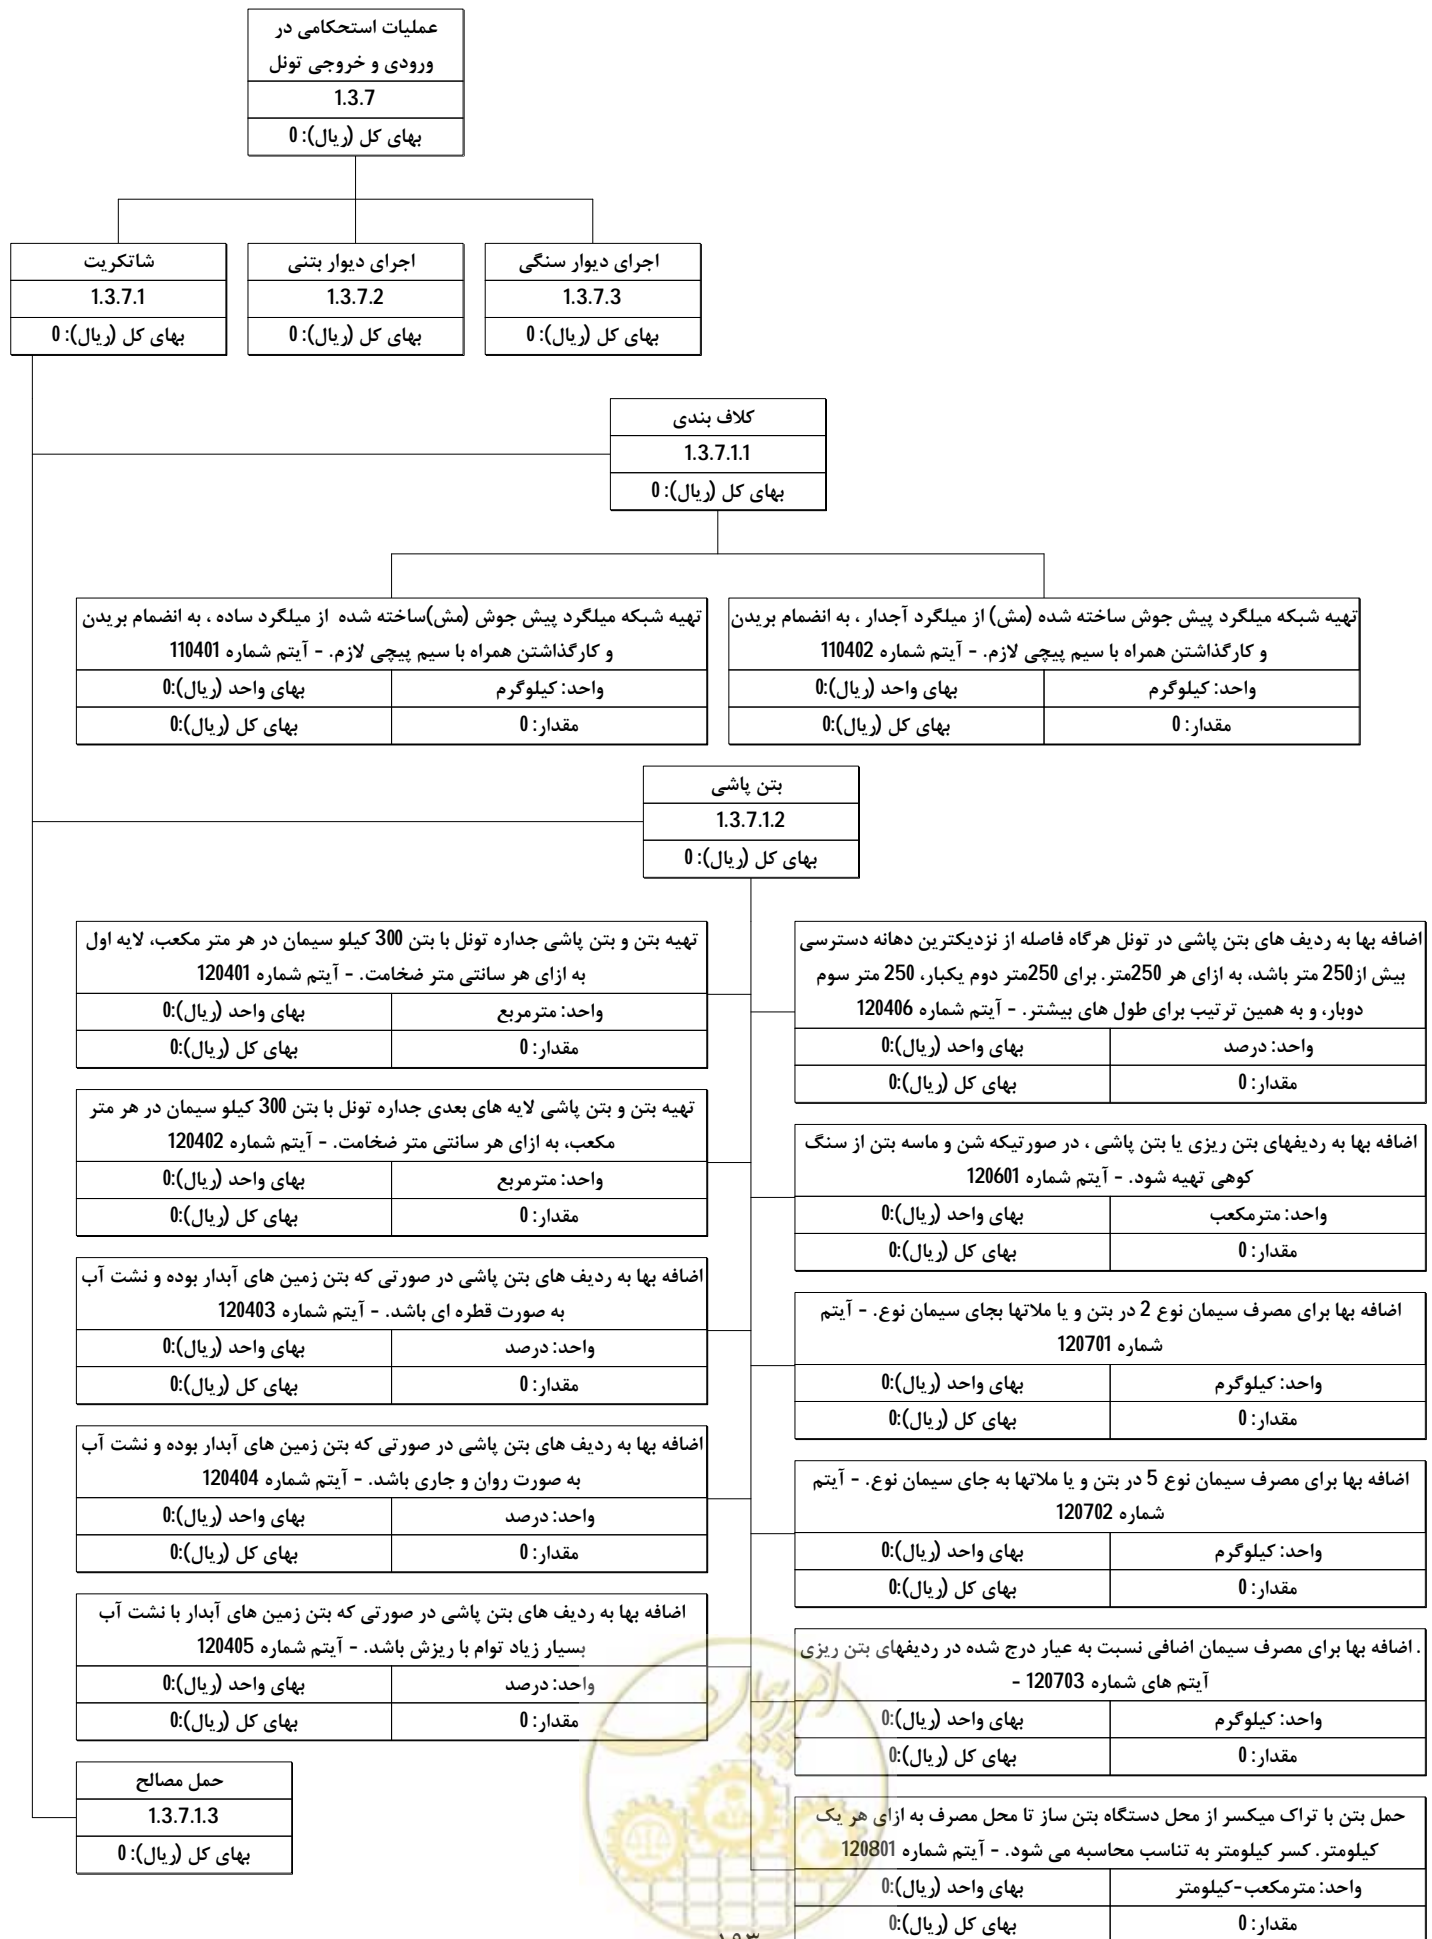 عملیات استحکامی در
ورودی و خروجی تونل
1.3.7
بهای کل (ریال): 0
شاتکریت
1.3.7.1
بهای کل (ریال): 0
اجرای دیوار بتنی
1.3.7.2
بهای کل (ریال): 0
اجرای دیوار سنگی
1.3.7.3
بهای کل (ریال): 0
کلاف بندی
1.3.7.1.1
بهای کل (ریال): 0
تهیه شبکه میلگرد پیش جوش (مش)ساخته شده از میلگرد ساده ، به انضمام بریدن
و کارگذاشتن همراه با سیم پیچی لازم. - آیتم شماره 110401
واحد: کیلوگرم
بهای واحد (ریال):0
مقدار: 0
بهای کل (ریال):0
تهیه شبکه میلگرد پیش جوش ساخته شده (مش) از میلگرد آجدار ، به انضمام بریدن
و کارگذاشتن همراه با سیم پیچی لازم. - آیتم شماره 110402
واحد: کیلوگرم
بهای واحد (ریال):0
مقدار: 0
بهای کل (ریال):0
بتن پاشی
1.3.7.1.2
بهای کل (ریال): 0
تهیه بتن و بتن پاشی جداره تونل با بتن 300 کیلو سیمان در هر متر مکعب، لایه اول
به ازای هر سانتی متر ضخامت. - آیتم شماره 120401
واحد: مترمربع
بهای واحد (ریال):0
مقدار: 0
بهای کل (ریال):0
تهیه بتن و بتن پاشی لایه های بعدی جداره تونل با بتن 300 کیلو سیمان در هر متر
مکعب، به ازای هر سانتی متر ضخامت. - آیتم شماره 120402
واحد: مترمربع
بهای واحد (ریال):0
مقدار: 0
بهای کل (ریال):0
اضافه بها به ردیف های بتن پاشی در صورتی که بتن زمین های آبدار بوده و نشت آب
به صورت قطره ای باشد. - آیتم شماره 120403
واحد: درصد
بهای واحد (ریال):0
مقدار: 0
بهای کل (ریال):0
اضافه بها به ردیف های بتن پاشی در صورتی که بتن زمین های آبدار بوده و نشت آب
به صورت روان و جاری باشد. - آیتم شماره 120404
واحد: درصد
بهای واحد (ریال):0
مقدار: 0
بهای کل (ریال):0
اضافه بها به ردیف های بتن پاشی در صورتی که بتن زمین های آبدار با نشت آب
بسیار زیاد توام با ریزش باشد. - آیتم شماره 120405
واحد: درصد
بهای واحد (ریال):0
مقدار: 0
بهای کل (ریال):0
اضافه بها به ردیف های بتن پاشی در تونل هرگاه فاصله از نزدیکترین دهانه دسترسی
بیش از250 متر باشد، به ازای هر 250متر. برای 250متر دوم یکبار، 250 متر سوم
دوبار، و به همین ترتیب برای طول های بیشتر. - آیتم شماره 120406
واحد: درصد
بهای واحد (ریال):0
مقدار: 0
بهای کل (ریال):0
اضافه بها به ردیفهای بتن ریزی یا بتن پاشی ، در صورتیکه شن و ماسه بتن از سنگ
کوهی تهیه شود. - آیتم شماره 120601
واحد: مترمکعب
بهای واحد (ریال):0
مقدار: 0
بهای کل (ریال):0
اضافه بها برای مصرف سیمان نوع 2 در بتن و یا ملاتها بجای سیمان نوع. - آیتم
شماره 120701
واحد: کیلوگرم
بهای واحد (ریال):0
مقدار: 0
بهای کل (ریال):0
اضافه بها برای مصرف سیمان نوع 5 در بتن و یا ملاتها به جای سیمان نوع. - آیتم
شماره 120702
واحد: کیلوگرم
بهای واحد (ریال):0
مقدار: 0
بهای کل (ریال):0
. اضافه بها برای مصرف سیمان اضافی نسبت به عیار درج شده در ردیفهای بتن ریزی
آیتم های شماره 120703 -
واحد: کیلوگرم
بهای واحد (ریال):0
مقدار: 0
بهای کل (ریال):0
حمل بتن با تراک میکسر از محل دستگاه بتن ساز تا محل مصرف به ازای هر یک
کیلومتر. کسر کیلومتر به تناسب محاسبه می شود. - آیتم شماره 120801
واحد: مترمکعب-کیلومتر
بهای واحد (ریال):0
مقدار: 0
بهای کل (ریال):0
حمل مصالح
1.3.7.1.3
بهای کل (ریال): 0
امور پیمان